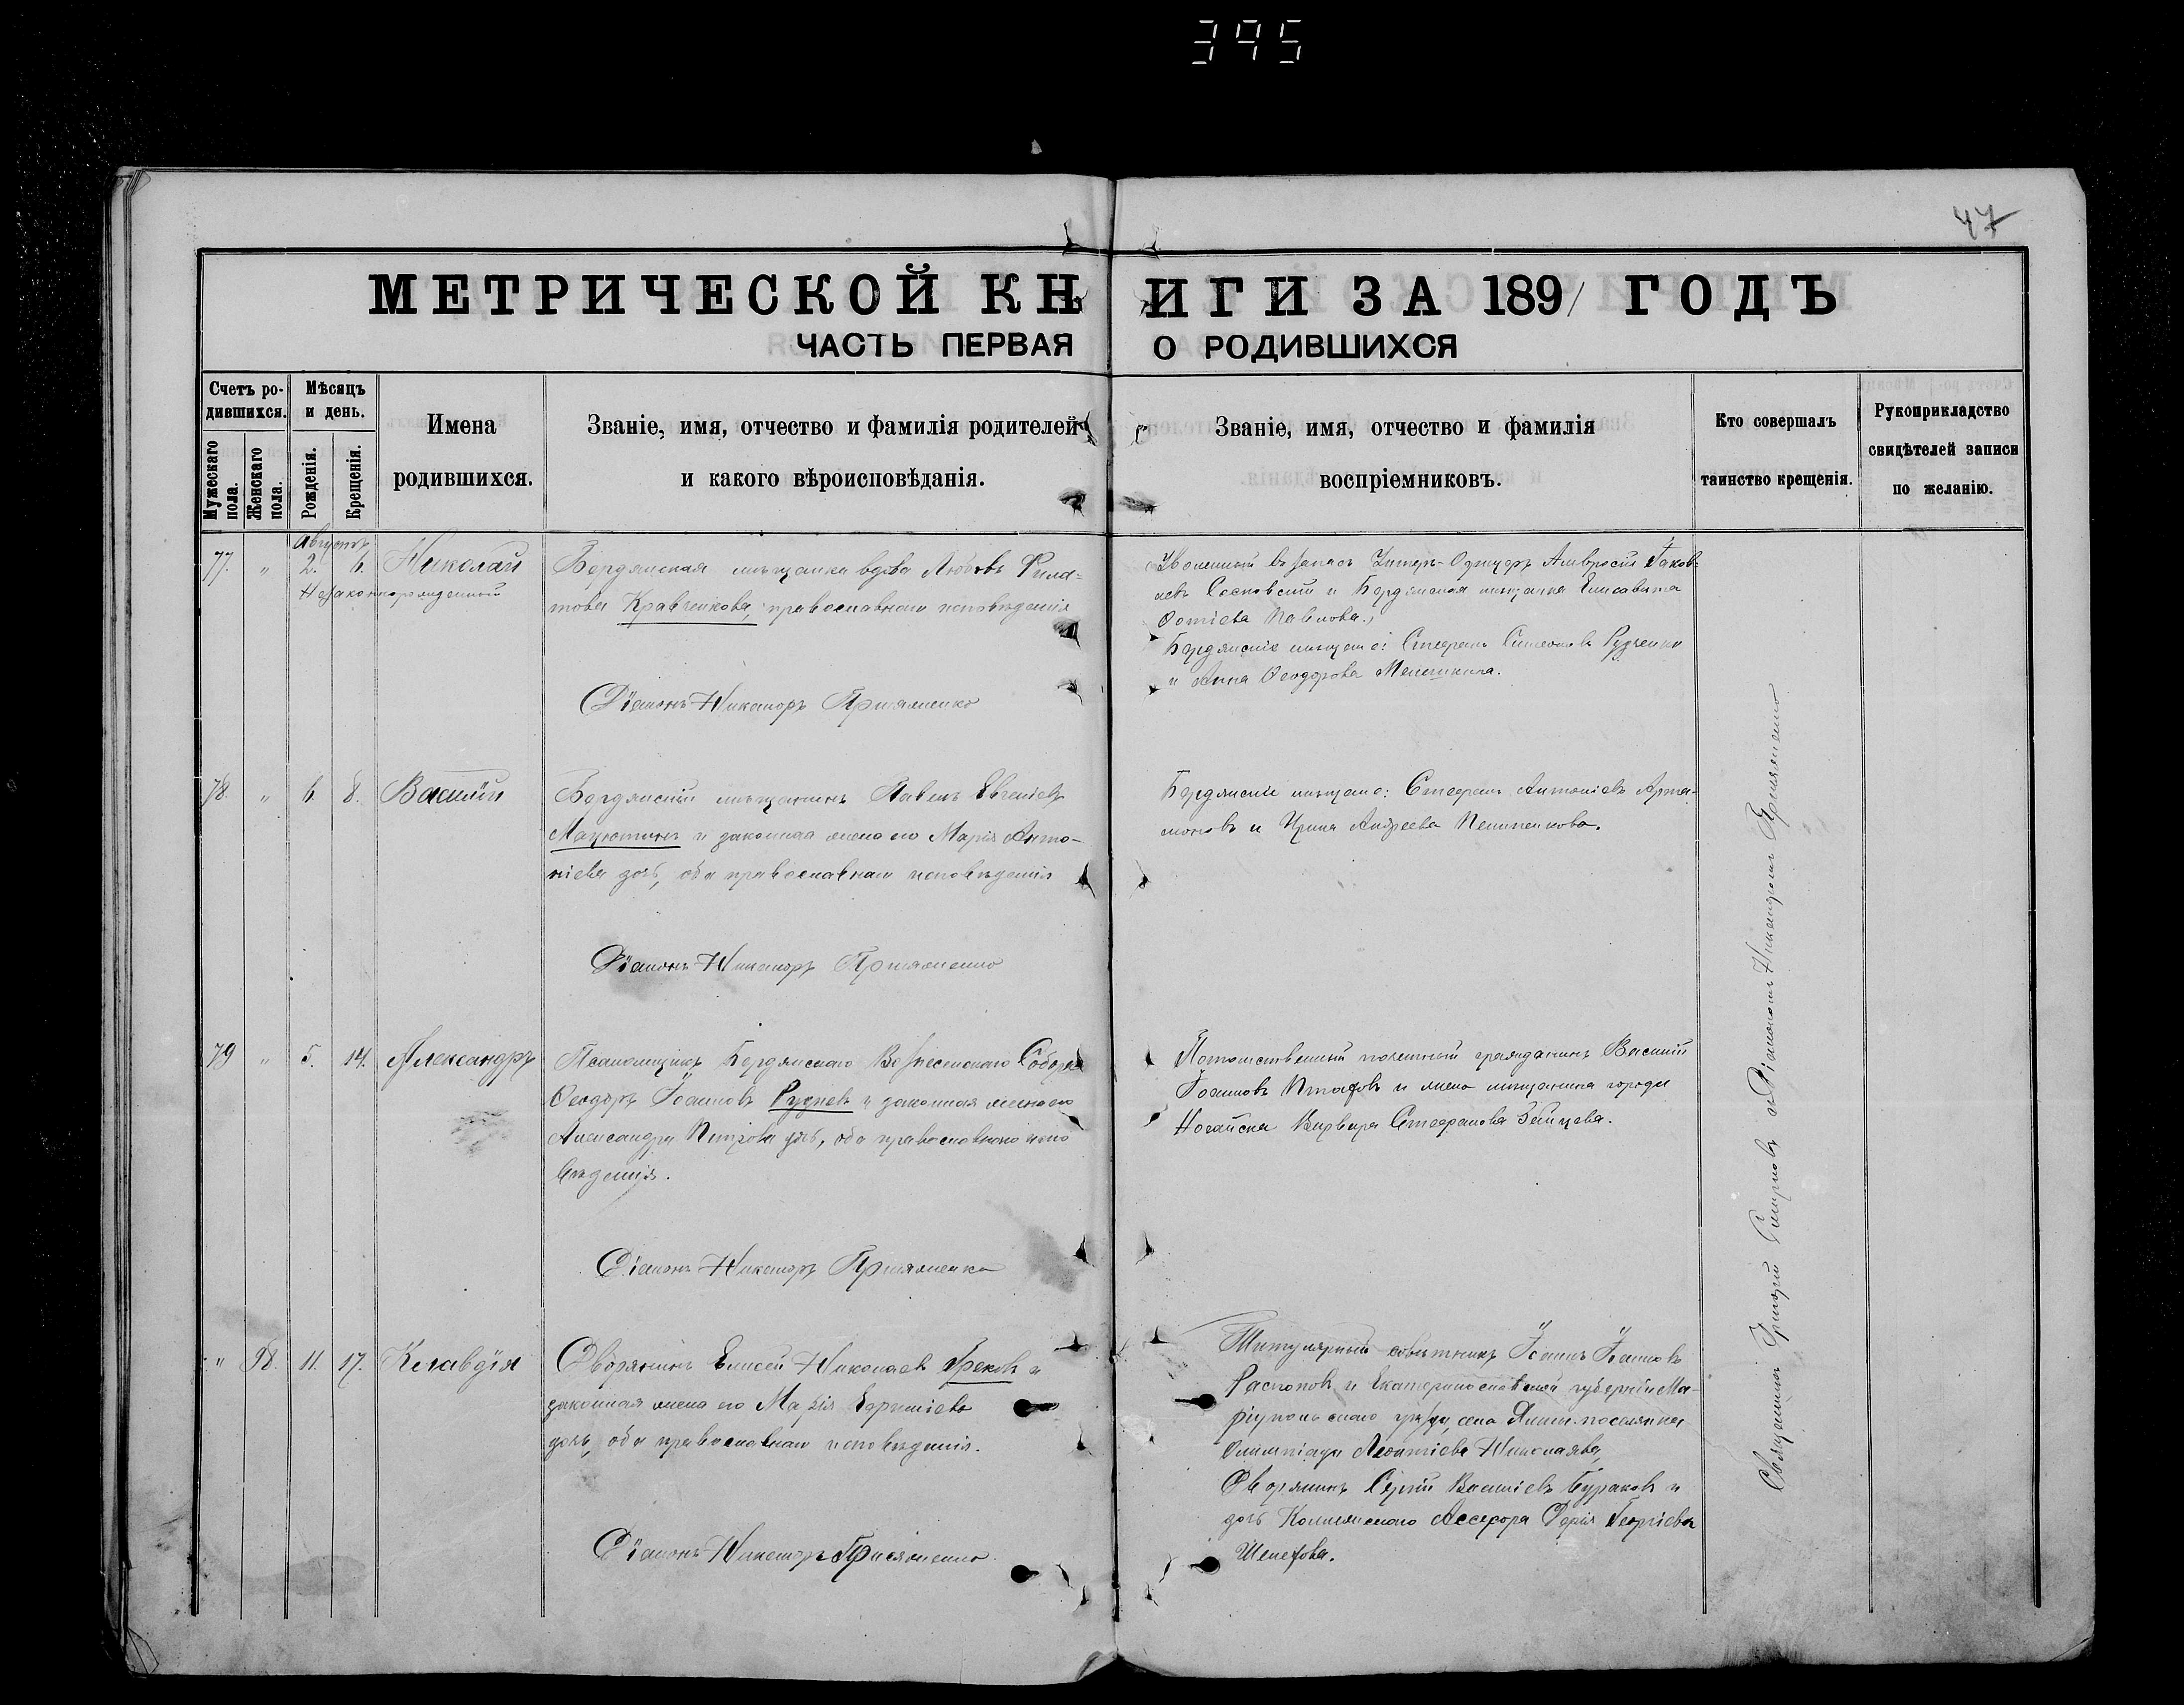 395
47
МЕТРИЧЕСКОЙ КНИГИ ЗА 1891 ГОДЪ
ЧАСТЬ ПЕРВАЯ О РОДИВШИХСЯ
Счетъ ро-
дившихся.
Мужескаго пола.
Женскаго пола.
Мѣсяцъ
и день.
Рожденія.
Крещенія.
Имена
родившихся.
Званіе, имя, отчество и фамилія родителей
и какого вѣроисповѣданія.
Званіе, имя, отчество и фамилія
воспріемниковъ.
Кто совершалъ
таинство крещенія.
Рукоприкладство
свидѣтелей записи
по желанію.
Августъ
77. " 2. 6. Николай
Незаконнорожденный
Бердянская мѣщанка вдова Любовь Фила-
това Кравченкова, православнаго исповѣданія
Діаконъ Никаноръ Присяженко
Уволенный въ запасъ Унтеръ-Офицеръ Амвросій Іаков-
левъ Сосновскій и Бердянская мѣщанка Елисавета
Фотіева Павлова.
Бердянскіе мѣщане: Стефанъ Симеоновъ Рудченко
и Анна Феодорова
78. " 6. 8. Василій
Бердянскій мѣщанинъ Павелъ Евгеніевъ
и законная жена его Марія Анто-
ніева дочь, оба православнаго исповѣданія
Діаконъ Никаноръ Присяженко
Бердянскіе мѣщане: Стефанъ Антоніевъ Арта-
моновъ и Ирина Андреева
79 " 5. 14. Александръ
Псаломщикъ Бердянскаго Вознесенскаго Собора
Феодоръ Іоанновъ Рудневъ и законная жена его
Александра Петрова дочь, оба православнаго испо
вѣданія.
Діаконъ Никаноръ Присяженко
Потомственный почетный гражданинъ Василій
Іоанновъ и жена мѣщанина города
Ногайска Варвара Стефанова Зайцева.
" 98. 11. 17. Клавдія
Дворянинъ Елисей Николаевъ Грековъ и
законная жена его Марія
дочь, оба православнаго исповѣданія.
Діаконъ Никаноръ Присяженко
Титулярный совѣтникъ Іоаннъ Іоанновъ
Распоповъ и Екатеринославской губерніи Ма-
ріупольскаго уѣзда, села Ялты поселянка
Олимпіада Леонтіева Николаева,
Дворянинъ Сергій Василіевъ Бураковъ и
дочь Коллежскаго Ассесора Дарія Георгіева
Шелехова.
Священникъ Григорій Смирновъ съ Діакономъ Никаноромъ Присяженко